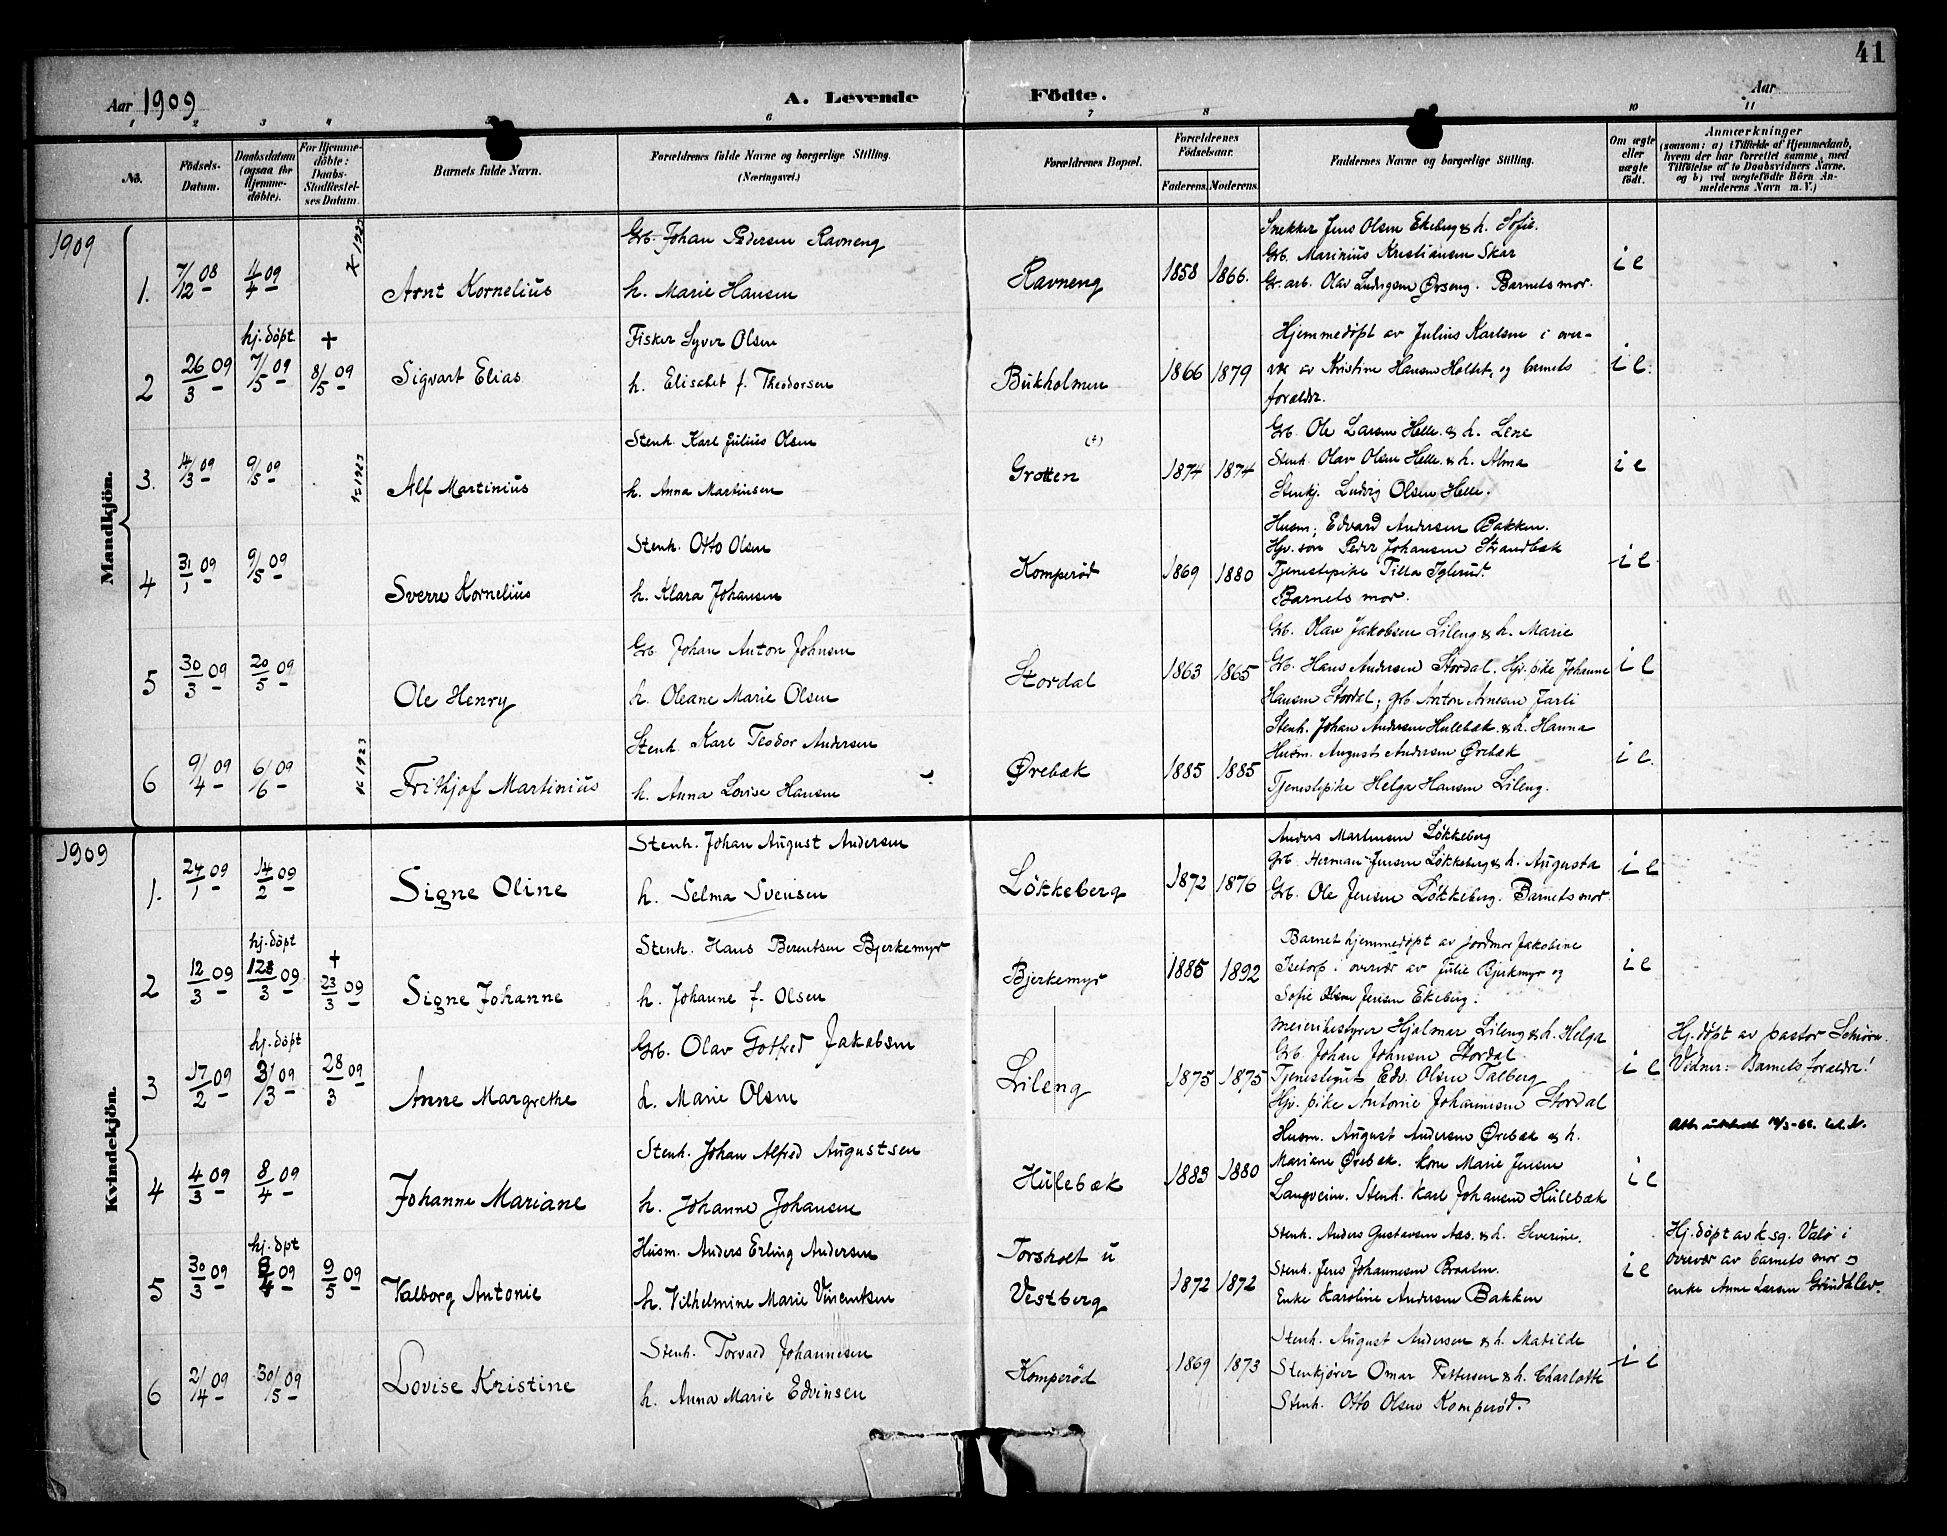 41
Aar 1909
A. Levende Födte.
Aar
1 2 3 4 6 7 8 10 11
No.
Födsels-Datum.
Daabsdatum (ogsaa for Hjemme-döbte).
For Hjemme-döbte: Daabs-Stadfæstel-ses Datum.
Barnets fulde Navn.
Forældrenes fulde Navne og borgerlige Stilling. (Næringsvei.)
Forældrenes Bopæl.
Forældrenes Födselsaar.
Faderens. Moderens.
Faddernes Navne og borgerlige Stilling.
Om ægte eller uægte födt.
Anmærkninger
(saasom: a) i Tilfælde af Hjemmedaab, hvem der har forrettet samme, med Tilföielse af to Daabsvidners Navne, og b) ved uægtefödte Börn An-melderens Navn m. V.)
Mandkjön.
1909
1. 7/12 08 4/4 09 Arnt Kornelius
Grb. Johan Pedersen Ravneng
h. Marie Hansen
Ravneng 1858 1866.
Snekker Jens Olsen Ekeberg & h. Sofie.
Grb. Marinius Kristiansen Skar
Gr. arb. Olav Ludvigsen Ørseng. Barnets mor.
2 26/3 09 hj. döpt 7/5 09 + 8/5 09 Sigvart Elias
Fisker Syver Olsen
h. Elisabet f. Theodorsen
Bukholmen 1866 1879
Hjemmedöpt av Julius Karlsen i over-
vær av Kristine Hansen Holtet, og barnets
forældr.
3. 14/3 09 9/5 09 1923 Alf Martinius
Stenh. Karl Julius Olsen
h. Anna Martinsen
Grotten 1874 1874
Grb. Ole Larsen Helle & h. Lene
Stenh. Olav Olsen Helle & h. Alma
Stenkj. Ludvig Olsen Helle.
4 31/1 09 9/5 09 Sverre Kornelius
Stenh. Otto Olsen
h. Klara Johansen
Komperöd 1869 1880
Husm. Edvard Andersen Bakken.
Hjv. søn Peder Johansen Strandbæk
Tjenestepike Tilla Iglerud.
Barnets mor.
5 30/3 09 20/5 09 Ole Henry
Grb. Johan Anton Johnsen
h. Oleane Marie Olsen
Stordal 1863 1865
Grb. Olav Jakobsen Lileng & h. Marie
Grb. Hans Andersen Stordal. Hjv. pike Johanne
Hansen Stordal, grb. Anton Arnesen Jarli
6 9/4 09 6/6 09 1923 Frithjof Martinius
Stenh. Karl Teodor Andersen
h. Anna Lovise Hansen
Ørebæk 1885 1885
Stenh. Johan Andersen Hulebæk & h. Hanna
Husm. August Andersen Ørebæk
Tjenestepike Helga Hansen Lileng.
Kvindekjön.
1909
1. 24/1 09 14/2 09 Signe Oline
Stenh. Johan August Andersen
h. Selma Svensen
Lökkeberg 1872 1876
Anders Martinsen Lökkeberg
Grb. Herman Jensen Lökkeberg & h. Augusta
Grb. Ole Jensen Lökkeberg. Barnets mor.
2 12/3 09 hj. döpt 09 + 23/3 09 Signe Johanne
Stenh. Hans Berentsen Bjerkemyr
h. Johanne f. Olsen
Bjerkemyr 1886 1892
Barnet hjemmedöpt av jordmor Jakobine
Isetorp i overvær av Julie Bjerkmyr og
Sofie Olsen Jensen Ekeberg.
3 17/2 09 hj. döpt 3/3 09 28/3 09 Anne Margrethe
Grb. Olav Gotfred Jakobsen
h. Marie Olsen
Lileng 1875 1875
Meieribestyrer Hjalmar Lileng & h. Helga
Grb. Johan Johnsen Stordal.
Tjenestegut Edv. Olsen Talberg
Hjv. pike Antonie Johannesen Stordal
Hj. döpt av pastor Schiörn.
Vidner: Barnets forældre!
4 4/3 09 8/4 09 Johanne Mariane
Stenh. Johan Alfred Augustsen
h. Johanne Johansen
Hulebæk 1883 1880
Husm. August Andersen Ørebæk & h.
Mariane Ørebæk. Kone Marie Jensen
Langveim. Stenh. Karl Johansen Hulebæk
5 30/3 09 hj. dpt 09 9/5 09 Valborg Antonie
Husm. Anders Erling Andersen
h. Vilhelmine Marie Vincentsen
Torsholt u
Vestberg 1872 1872
Stenh. Anders Gustavsen Aas. & h. Severine.
Stenh. Jens Johannesen Braaten.
Enke Karoline Andersen Bakken
Hj. döpt av k. sg. Valö i
overvær av barnets mor og
enke Anne Larsen Grindhlev.
6 2/4 09 30/5 09 Lovise Kristine
Stenh. Torvald Johannesen
h. Anna Marie Edvinsen
Komperöd 1869 1873
Stenh. August Andersen & h. Matilde
Stenkjörer Omar Pettersen & h. Charlotte
Stenh. Otto Olsen Komperöd.